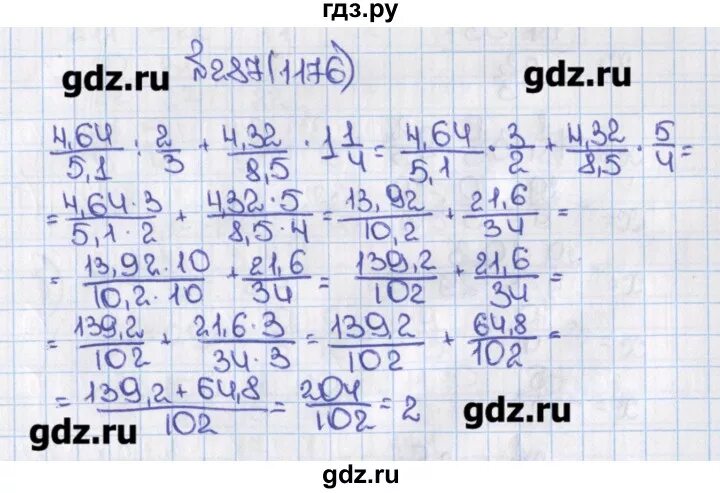 гдз.ру
№287(1176)
gdz.ru gdz.ru
4,64/5,1 : 2/3 + 4,32/8,5 · 1 1/4 = 4,64/5,1 · 3/2 + 4,32/8,5 · 5/4 =
= 4,64·3/5,1·2 + 4,32·5/8,5·4 = 13,92/10,2 + 21,6/34 =
= 13,92·10/10,2·10 + 21,6/34 = 139,2/102 + 21,6/34 =
= 139,2/102 + 21,6·3/34·3 = 139,2/102 + 64,8/102 =
= 139,2+64,8/102 = 204/102 = 2
gdz.ru gdz.ru
gdz.ru